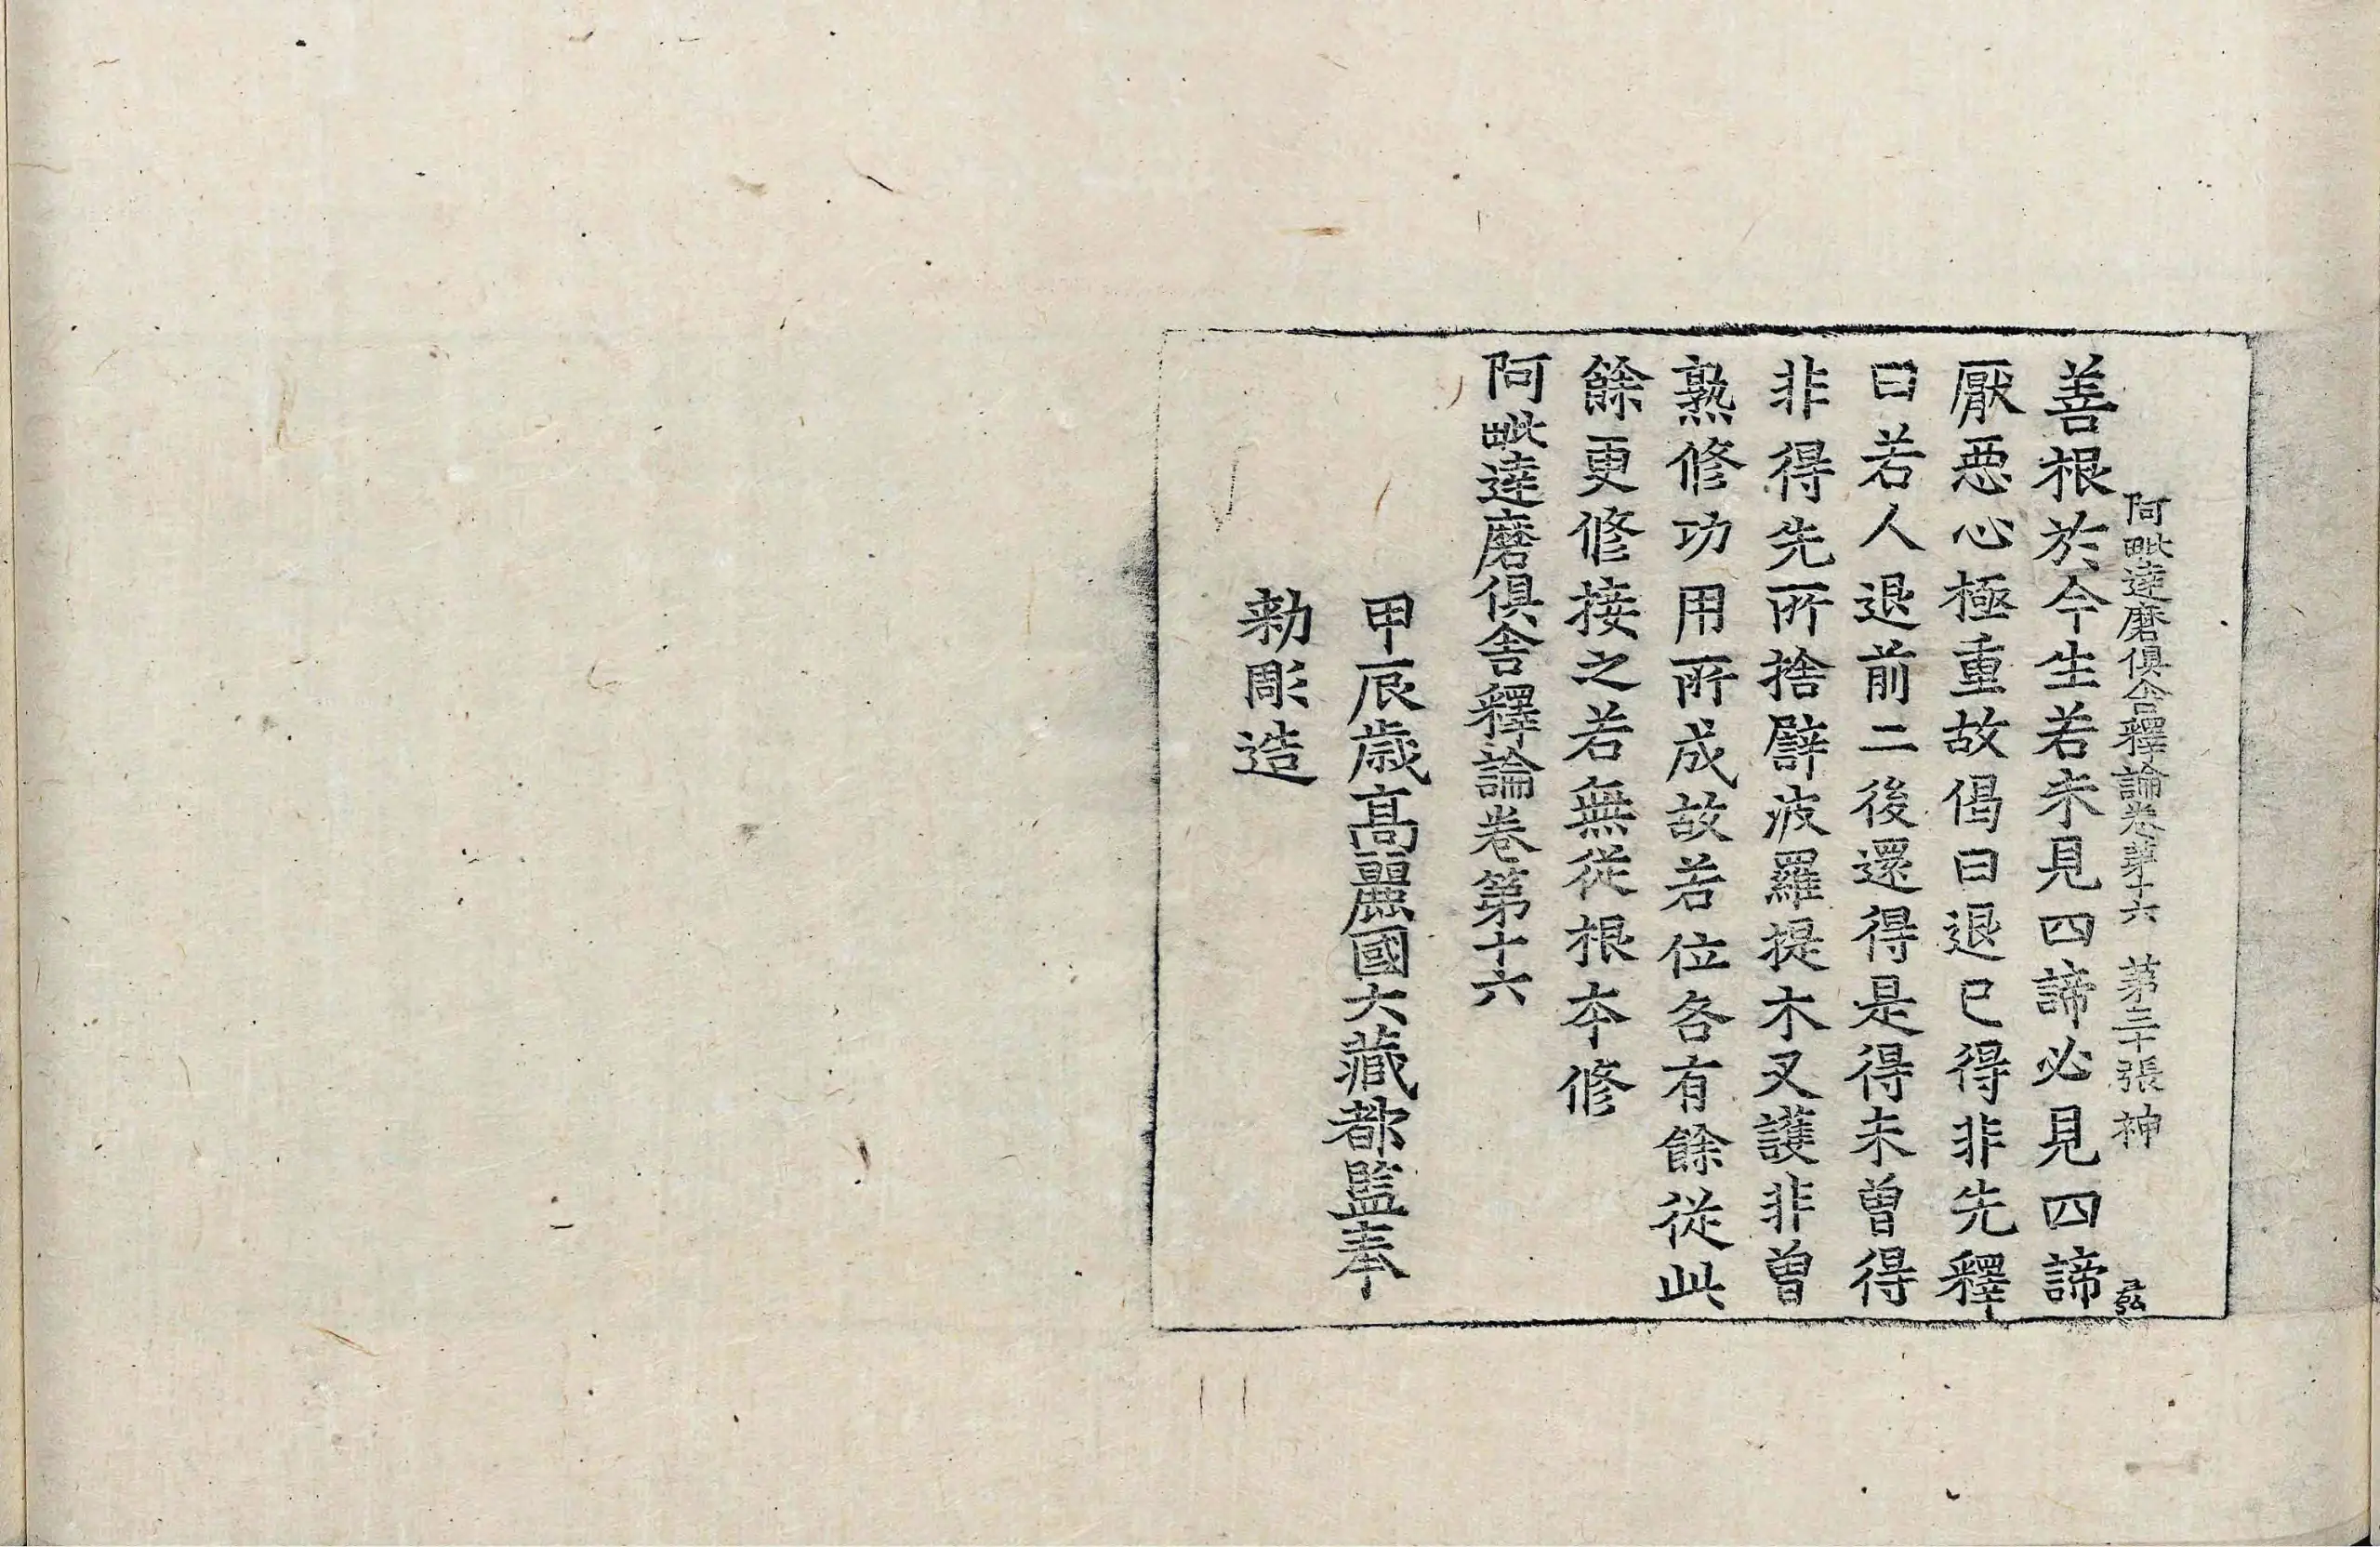 阿毗達磨俱舍釋論卷第十六 第三十張 神
善根於今生若未見四諦必見四諦
厭惡心極重故偈曰退已得非先釋
曰若人退前二後還得是得未曾得
非得先所捨譬波羅提木叉護非曾
熟修功用所成故若位各有餘從此
餘更修接之若無從根本修
阿毗達磨俱舍釋論卷第十六
甲辰歲高麗國大藏都監奉
勅彫造